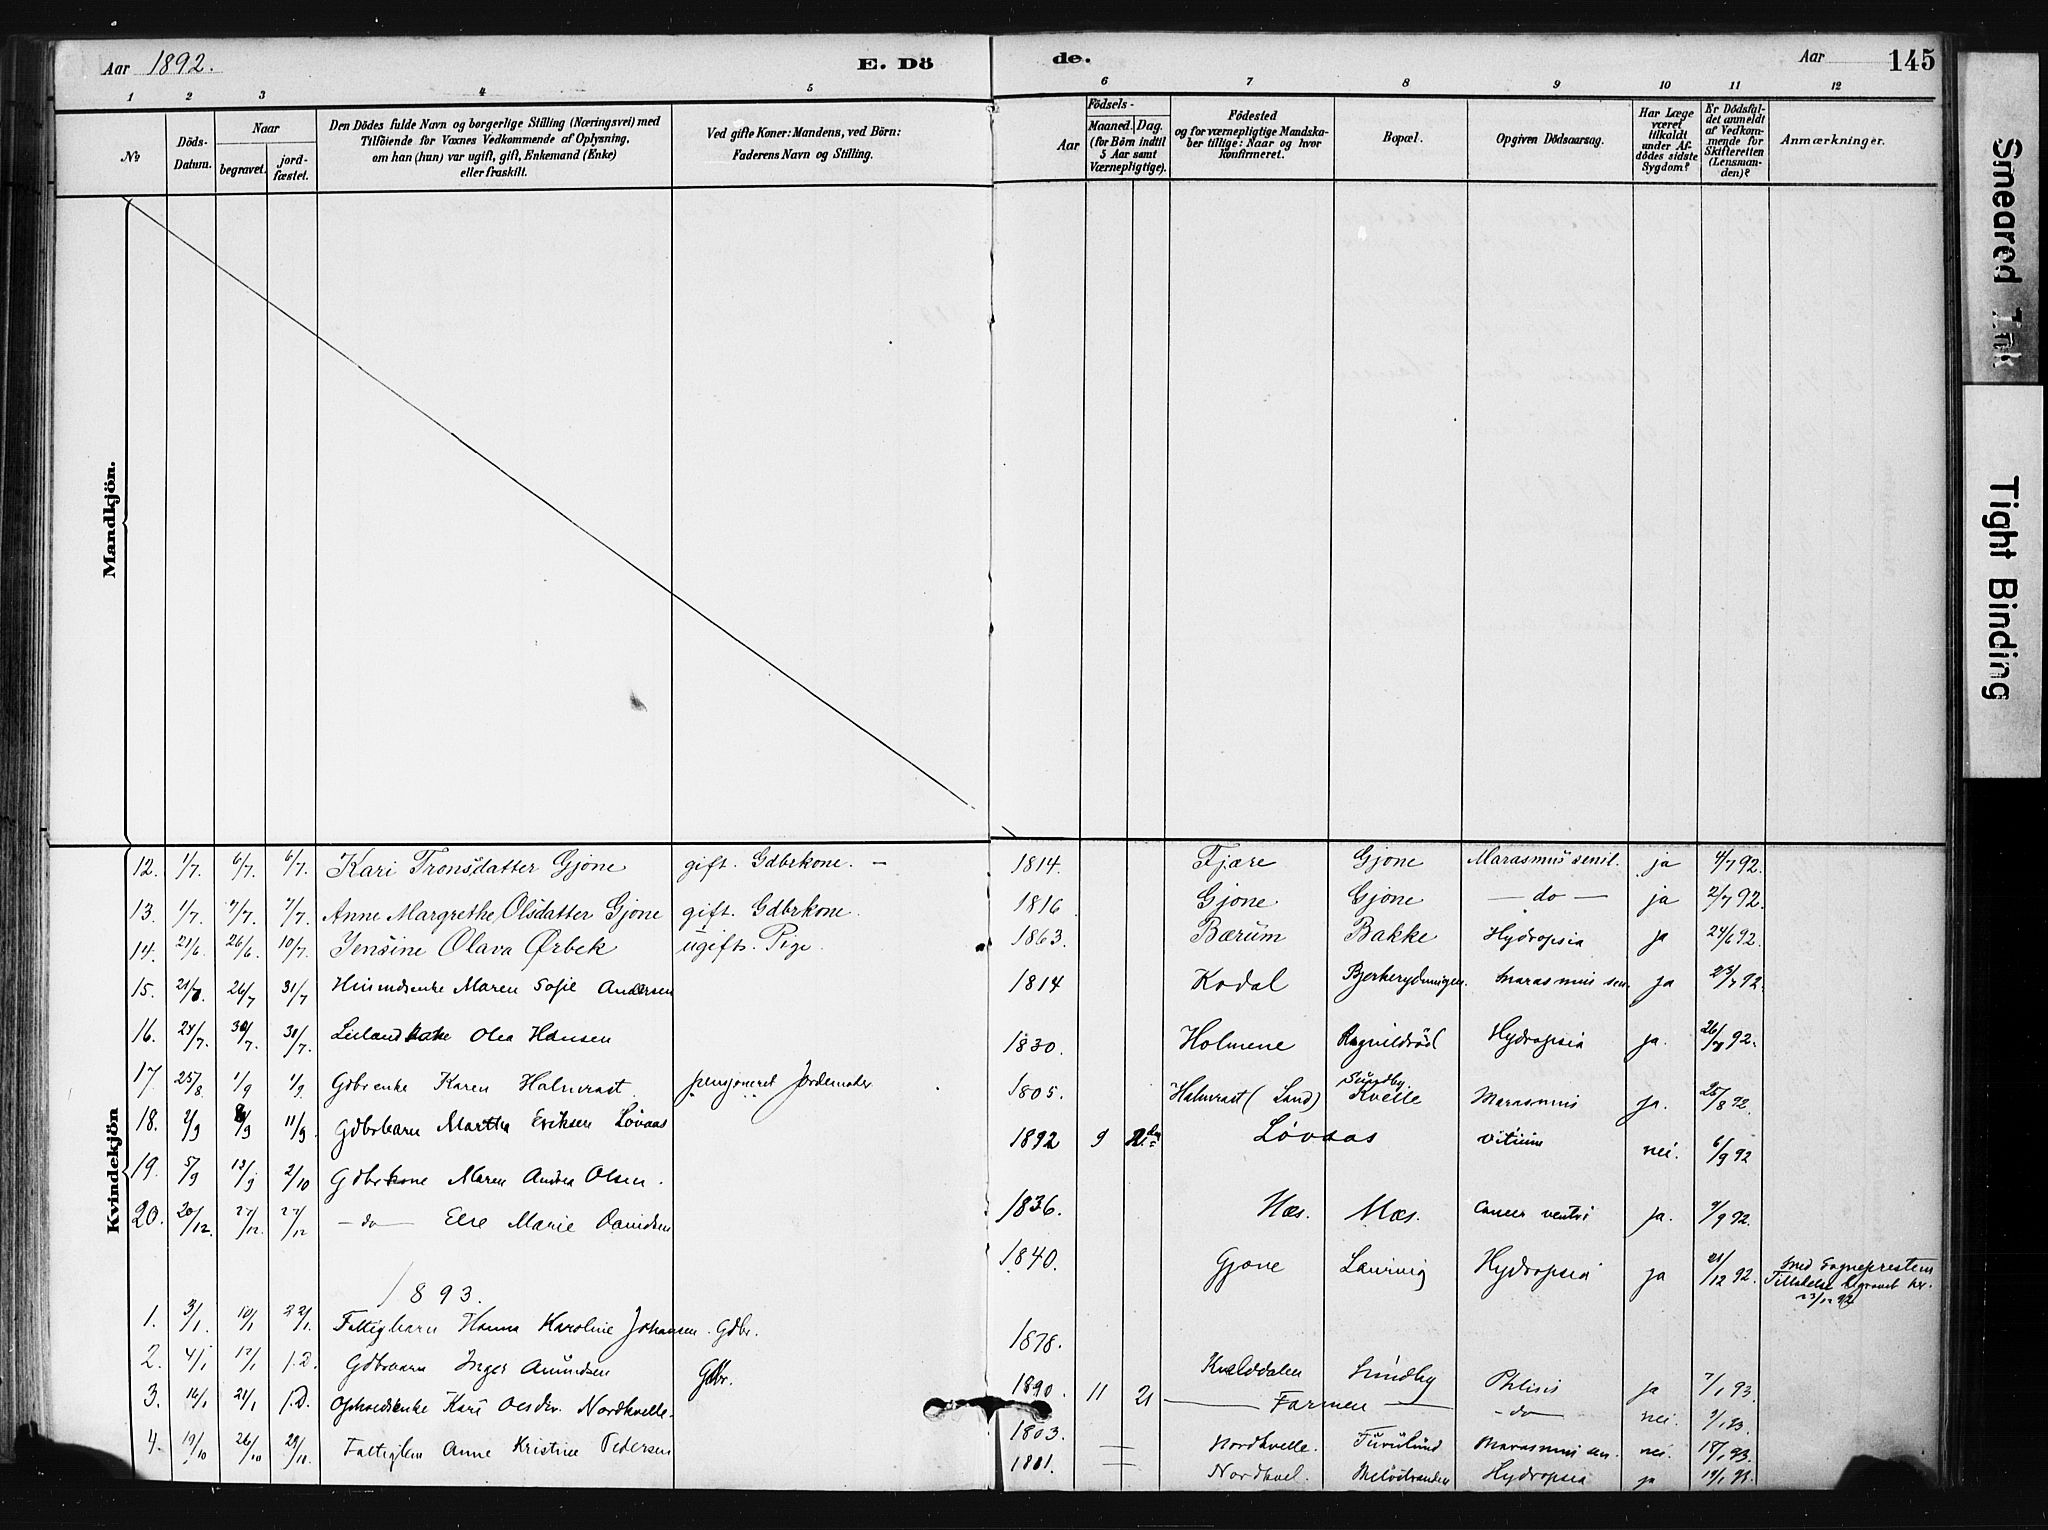 Aar 1892.
E. Dö
de.
Aar
145
1 2 3 4 5 6 7 8 9 10 11 12
No
Döds-Datum.
Naar
begravet.
jord-fæstet.
Den Dödes fulde Navn og borgerlige Stilling (Næringsvei) med
Tilföiende for Voxnes Vedkommende af Oplysning,
om han (hun) var ugift, gift, Enkemand (Enke)
eller fraskilt.
Ved gifte Koner: Mandens, ved Börn:
Faderens Navn og Stilling.
Aar
Födsels-
Maaned. Dag.
(for Börn indtil
5 Aar samt
Værnepligtige).
Födested
og for værnepligtige Mandska-
ber tillige: Naar og hvor
konfirmeret.
Bopæl.
Opgiven Dödsaarsag.
Har Læge
været
tilkaldt
under Af-
dödes sidste
Sygdom?
Er Dödsfal-
det anmeldt
af Vedkom-
mende for
Skifteretten
(Lensman-
den)?
Anmærkninger.
Mandkjön.
Kvindekjön
12. 1/7. 6/7. 6/7. Kari Tronsdatter Gjone gift. Gdbrkone. — 1814. Fjære Gjone Marasmus senil. ja 4/7 92.
13. 1/7. 7/7. 7/7. Anne Margrethe Olsdatter Gjone gift. Gdbrkone. 1816 Gjone Gjone — do — ja 2/7 92.
14. 21/6. 26/6. 10/7. Jensine Olava Ørbek ugift. Pige. 1863. Bærum Bakke Hydropsia ja 24/6 92.
15. 21/7. 26/7 31/7 Husmdsenke Maren Sofie Andersen 1814 Kodal marasmus sen. ja 23/7 92.
16. 24/7. 30/7. 31/7. Olea Hansen 1830. Holmene Hydropsia ja. 26/7 92.
17. 25/8. 1/9 1/9. Gdbrenke Karen Halmrast. pensjoneret Jordemoder 1805. Halmrast (Land) Sundby. Kvelle Marasmus ja. 25/8 92.
18. 2/9 8/9 11/9. Gdbrbarn Martha Eriksen Løvaas 1892 9 Løvaas vitium nei. 6/9 92
19. 5/9 13/9 2/10 Gdbrkone Maren Andrea Olsen. 1836. Næs. Næs. Cancer ventri ja. 9/9 92.
20. 20/12. 27/12. 27/12 — do — Else Marie Davidsen 1840. Gjone Laurvig Hydropsia ja 21/12 92. Med Sogneprestens
Tilladelse begravet her.
23/12 92
1893.
1. 3/1. 10/1 22/1. Fattigbarn Hanna Karoline Johansen. Gdbr. 1878. Kvælddalen Sundby Phtisis ja 7/1 93.
2. 4/1 12/1 J.D. Gdbrbarn Inger Amundsen Gdbr. 1890. 11 21 — Farmen — — do — nei. 9/1 93.
3. 14/1 21/1 J.D. Kari Olsdtr. Nordkvelle. 1803. Nordkvelle. Furulund Marasmus sen. nei. 18/1 93.
4. 19/10 26/10 29/10. Fattiglem Anne Kristine Pedersen Nordkvel. Meløstranden Hydropsia ja
Smeared Ink
Tight Binding